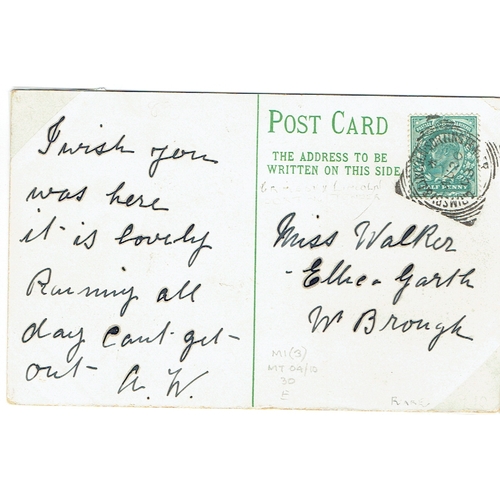 I wish you
was here
it is lovely
Raining all
day cant get
out A. W.
POST CARD
THE ADDRESS TO BE
WRITTEN ON THIS SIDE
HALF PENNY
Miss Walker
Garth
W Brough
M1(3)
MT 04/10
30
E